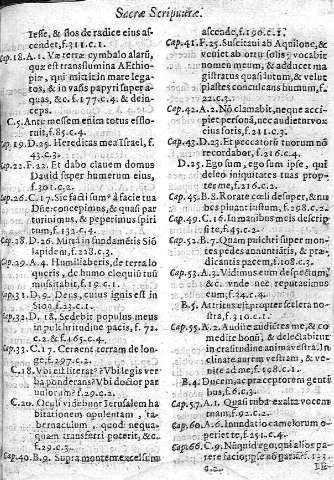 Sacræ Scripturæ.
Iesse, & flos de radice eius ascendet, f.311.c.1.
Cap.18.A.1. Væ terræ cymbalo alarũ,
quæ est trans flumina AEthiopiæ, qui mittit in mare legatos,
& in vasis papyri super aquas, &c. f.177.c.4. & deinceps.
C.5. Ante messem enim totus effloruit, f.85.c.4.
Cap.19.D.25. Hereditas mea Israel, f.
43.c.3.
Cap.22.F.22. Et dabo clauem domus
Dauid super humerum eius,
f.301.c.2.
Cap.26.C.17. Sic facti sumus à facie tua
Dñe: concepimus, & quasi parturiuimus,
& peperimus spiritum, f.132.c.4.
Cap.28.D.26. Mittã in fundamẽtis Siõ
lapidem, f.228.c.3.
Cap.29.A.4. Humiliaberis, de terra loqueris,
& de humo eloquiũ tuũ
mussitabit, f.19.c.1.
Cap.31.D.9. Deus, cuius ignis est in
Sion f.23.c.1.
Cap.32.D.18. Sedebit populus meus
in pulchritudine pacis, f. 72.
c.2. & f.165.c.4.
Cap.33.C.17. Cernent terram de longe,
f.297.c.2.
C.18. Vbi est literat? Vbi legis verba
ponderans? Vbi doctor paruulorum?
f.29.c.2.
C.20. Oculi videbunt Ierusalem habitationem
opulentam, tabernaculum,
quod nequaquam transferri poterit, &c.
f.29.c.3.
Cap.40.B.9. Supra montem excelsum
ascende, f.190.c.1.
Cap.41.F.25. Suscitaui ab Aquilone, &
veniet ab ortu solis: vocabit
nomen meum, & adducet magistratus
quasi lutum, & velut
plastes conculcans humum, f.
22.c.3.
Cap.42.A.2. Nõ clamabit, neque accipiet
personã, nec audietur vox
eius foris, f.211.c.3.
Cap.43.D.23. Et peccatorũ tuorum nõ
recordabor, f.316.c.4.
D.25. Ego sum, ego sum ipse, qui
deleo iniquitates tuas propter
me, f.216.c.2.
Cap.45.B.8. Rorate cæli desuper, & nubes
pluant iustum, f.298.c.2.
Cap.49.C.16. In manibus meis descripsi
te, f.45.c.2.
Cap.52.B.7. Quam pulchri super montes
pedes annuntiãtis, & prædicantis
pacem, f.108.c.3.
Cap.53.A.3. Vidimus eum despectum,
&c. vnde nec reputauimus
eum, f.24.c.4.
B.5. Attritus est propter scelera nostra,
f.310.c.1.
Cap.55.A.2. Audite audiẽtes me, & comedite
bonũ, & delectabitur
in crassitudine anima vestra. Inclinate
aurem vestram, & venite
ad me, f.198.c.1.
B.4. Ducem, ac præceptorem gentibus,
f.6.c.3.
Cap.57.A.1. Quasi tuba exalta vocem
tuam, f.92.c.2.
Cap.60.A.6. Inundatio camelorum operiet
te, f.251.c.4.
Cap.66.C.9. Nunquid ego, qui alios parere
facio, ipse nõ pariã? f.133.
c.2.